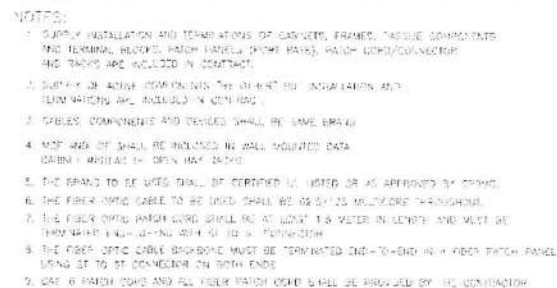 NOTES:
1. SUPPLY INSTALLATION AND TERMINATIONS OF CABINETS, FRAMES, PASSIVE COMPONENTS
AND TERMINAL BLOCKS, PATCH PANELS (PORT BASE), PATCH CORD/CONNECTOR
AND RACKS ARE INCLUDED IN CONTRACT.
2. SUPPLY OF ACTIVE COMPONENTS BY OTHERS BUT INSTALLATION AND
TERMINATIONS ARE INCLUDED IN CONTRACT.
3. CABLES, COMPONENTS AND DEVICES SHALL BE SAME BRAND
4. MDF AND IDF SHALL BE INCLOSED IN WALL MOUNTED DATA
CABINET INSTEAD OF OPEN BAY RACKS
5. THE BRAND TO BE USED SHALL BE CERTIFIED UL LISTED OR AS APPROVED BY
6. THE FIBER OPTIC CABLE TO BE USED SHALL BE 62.5/125 MULTICORE THROUGHOUT.
7. THE FIBER OPTIC PATCH CORD SHALL BE AT LEAST 1.5 METER IN LENGTH AND MUST BE
TERMINATED END-TO-END WITH ST TO ST CONNECTOR
8. THE FIBER OPTIC CABLE BACKBONE MUST BE TERMINATED END-TO-END IN A FIBER PATCH PANEL
USING ST TO ST CONNECTOR ON BOTH ENDS
9. CAT. 6 PATCH CORD AND ALL FIBER PATCH CORD SHALL BE PROVIDED BY THE CONTRACTOR.